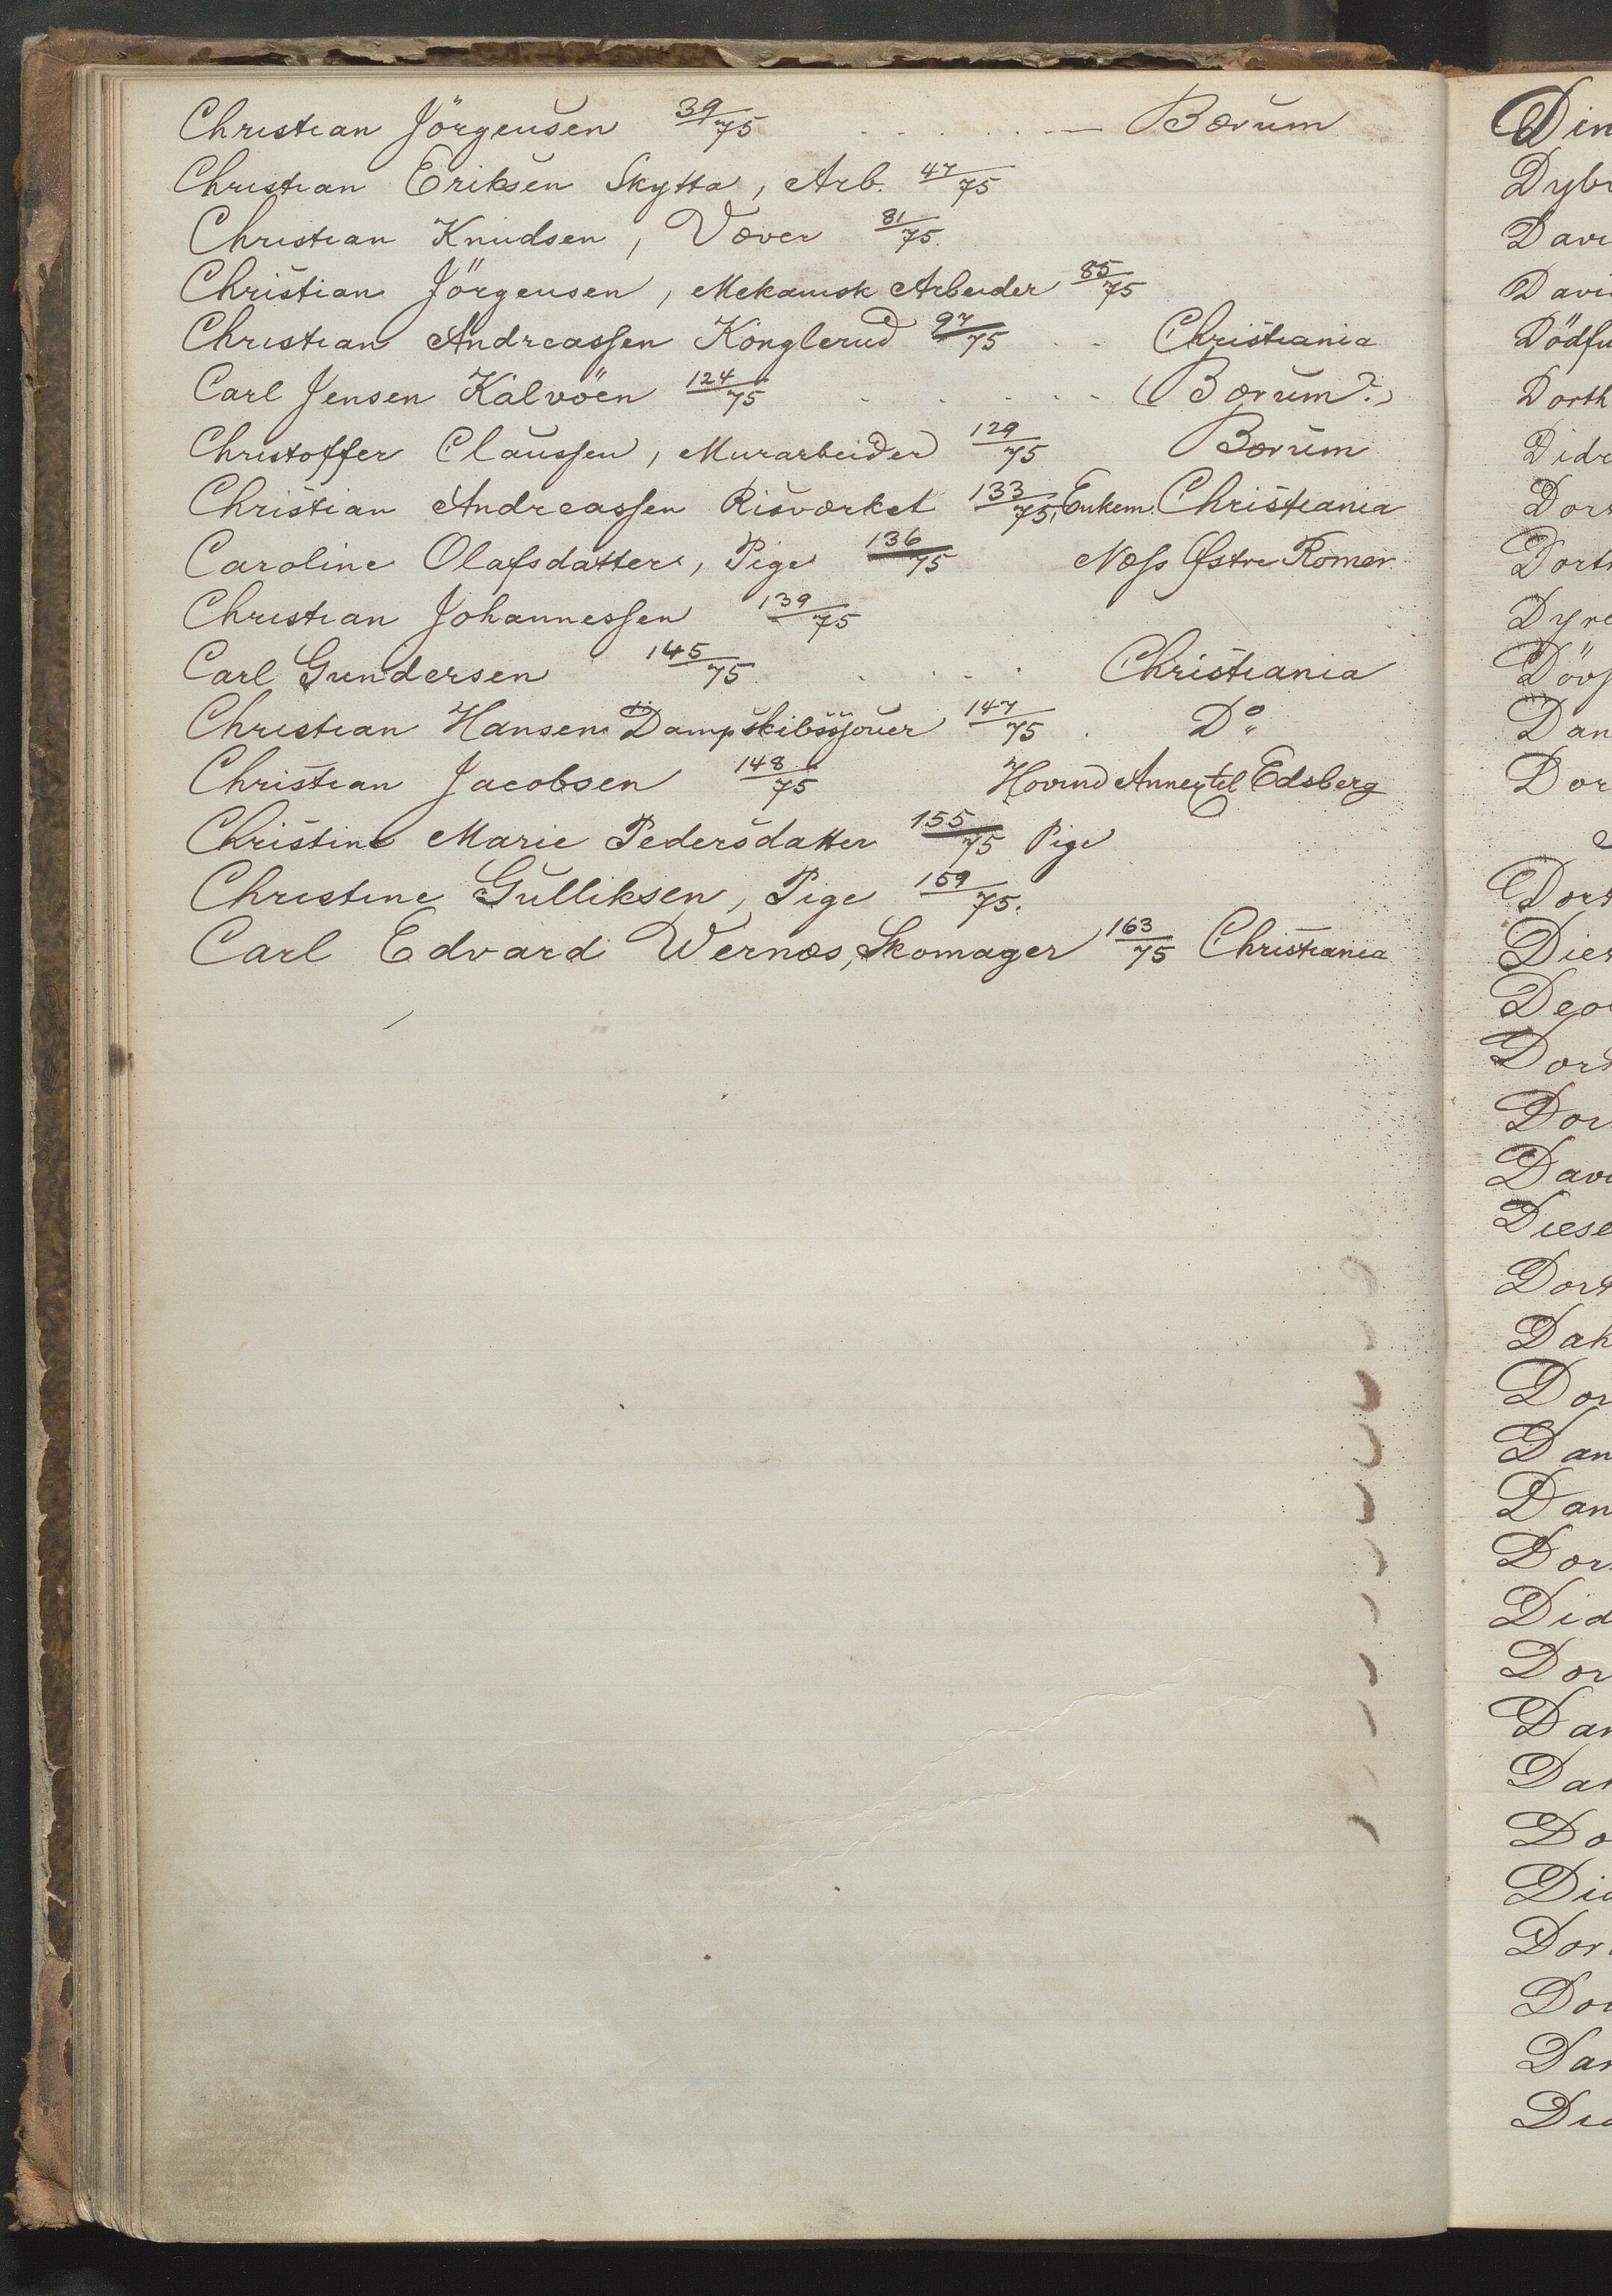 Christian Jörgensen 39/75 . . . . . . . — Bærum
Christian Eriksen Skytta, Arb. 47/75
Christian Knudsen, Væver 81/75.
Christian Jörgensen, Mekanisk Arbeider 85/75
Christian Andreassen Konglerud 97/75 . . Christiania
Carl Jensen Kalvöen 124/75 . . . . . (Bærum?)
Christoffer Claussen, Murarbeider 129/75 Bærum
Christian Andreassen Risværket 133/75, Enkem. Christiania
Caroline Olafsdatter, Pige 136/75 Næss Østre Romer.
Christian Johannessen 139/75
Carl Gundersen 145/75. . . . . Christiania
Christian Hansen Dampskibssjouer 147/75 . Do
Christian Jacobsen 148/75 Hovind Annex til Edsberg
Christine Marie Pedersdatter 155/75 Pige
Christine Gulliksen, Pige 159/75.
Carl Edvard Wernæs, Skomager 163/75 Christiania